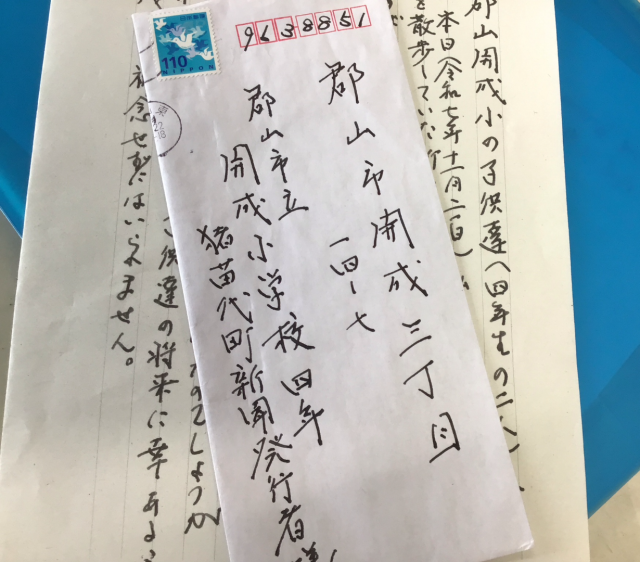 日本郵便
110
NIPPON
9638851
郡山市開成三丁目
一四ー七
郡山市立
開成小学校四年
猪苗代町新聞発行者様
郡山開成小の子供達へ(四年生の二人)
本日(令和七年十一月二日)
を散歩していた
のでしょうか
子供達の将来に幸あるう
祈念せずにはいられません。